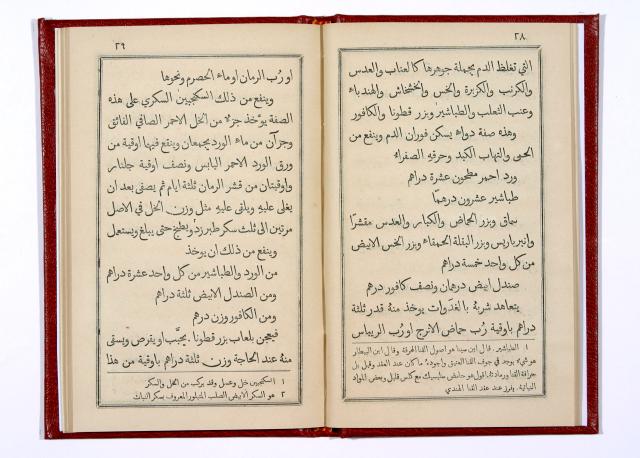 ٢٨
التي تغلظ الدم بجملة جوهرها كالعناب والعدس
والكرنب والكزبرة والخس والخشخاش والهندباء
وعنب الثعلب والطباشير وبزر قطونا والكافور
وهذه صفة دواء يسكن فوران الدم وينفع من
الحمى والتهاب الكبد وحرقة الصفراء
ورد احمر مطحون عشرة دراهم
طباشير عشرون درهما
سماق وبزر الحماض والكبار والعدس مقشرا
وانبرباريس وبزر البقلة الحمقاء وبزر الخس الابيض
من كل واحد خمسة دراهم
صندل ابيض درهمان ونصف كافور درهم
يتعاهد شربة بالغدوات يوخذ منه قدر ثلثة
دراهم باوقية رب حماض الاترج او رب الريباس
١ الطباشير. قال ابن سينا هو اصول القنا المحرقة وقال ابن البيطار
هو شيء يوجد في جوف القنا العتيق واجوده ما كان عند العقد وقيل بل
القنا ورماده اقول هو حامض سليسيك مع كلس قليل وبعض المواد
النباتية. يفرز عند عقد القنا الهندي
٢٩
او رب الرمان او ماء الحصرم ونحوها
وينفع من ذلك السكنجبين السكري على هذه
الصفة يؤخذ جزء من الخل الاحمر الصافي الفائق
وجزآن من ماء الورد يجمعان وينقع فيها اوقية من
ورق الورد الاحمر اليابس ونصف اوقية جلنار
واوقيتان من قشر الرمان ثلثة ايام ثم يصفى بعد ان
يغلى عليه ويلقى عليه مثل وزن الخل في الاصل
مرتين الى ثلث سكر طبرزد ويطبخ حتى يبلغ ويستعمل
وينفع من ذلك ان يوخذ
من الورد والطباشير من كل واحد عشرة دراهم
ومن الصندل الابيض ثلثة دراهم
ومن الكافور وزن درهم
فيعجن بلعاب بزر قطونا. يحبب او يقرص ويسقى
منه عند الحاجة وزن ثلثة دراهم باوقية من هذا
١ السكنجبين خل وعسل وقد يركب من الخل والسكر
٢ هو السكر الابيض الصلب المتبلور المعروف بسكر النبات